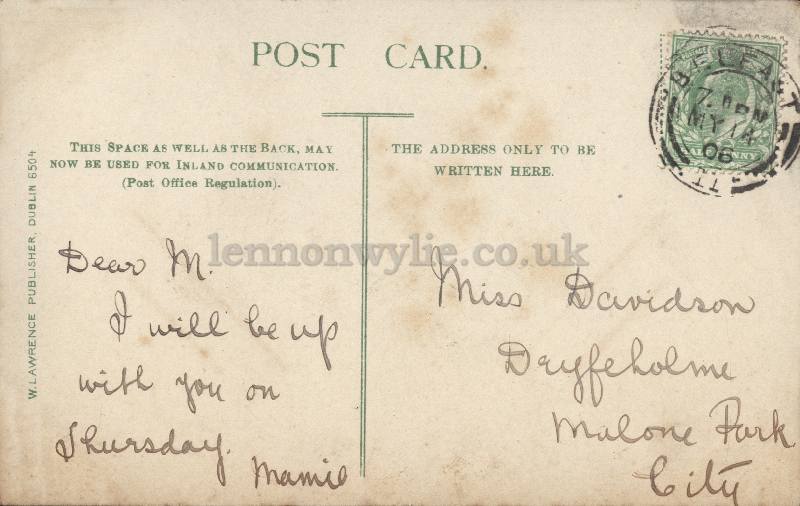 POST CARD.
THIS SPACE AS WELL AS THE BACK, MAY
NOW BE USED FOR INLAND COMMUNICATION.
(Post Office Regulation).
THE ADDRESS ONLY TO BE
WRITTEN HERE.
BELFAST
MY 14
06
W. LAWRENCE PUBLISHER, DUBLIN 6504
lennonwylie.co.uk
Dear M.
I will be up
with you on
Thursday.
Mamie
Miss Davidson
Dryfeholme
Malone Park
City